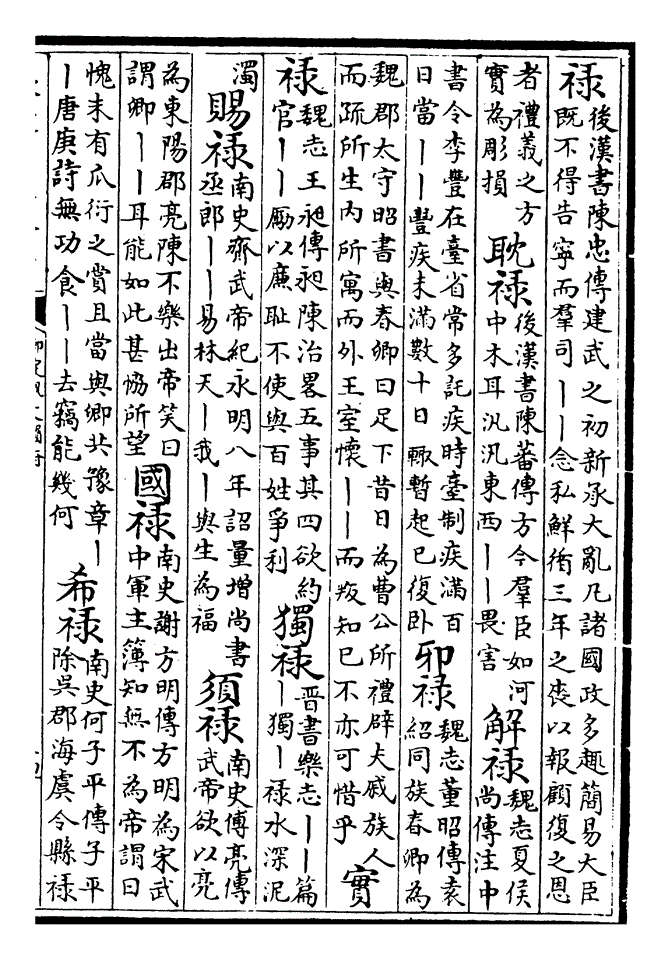 禄
後漢書陳忠傳建武之初新承大亂凡諸國政多趣簡易大臣
既不得告寧而羣司丨丨念私鮮循三年之喪以報顧復之恩
者禮義之方
實為彫損
耽禄
後漢書陳蕃傳方今羣臣如河
中木耳汎汎東西丨丨畏害
解禄
魏志夏侯
尚傳注中
書令李豐在臺省常多託疾時臺制疾滿百
日當丨丨豐疾未滿數十日輙暫起已復卧
邪禄
魏志董昭傳袁
紹同族春卿為
魏郡太守昭書與春卿曰足下昔日為曹公所禮辟夫戚族人
而疏所生内所寓而外王室懷丨丨而叛知已不亦可惜乎
實
禄
魏志王昶傳昶陳治畧五事其四欲約
官丨丨勵以廉耻不使與百姓爭利
獨禄
晉書樂志丨丨篇
丨獨丨禄水深泥
濁
賜禄
南史齊武帝紀永明八年詔量增尚書
丞郎丨丨易林天丨我丨與生為福
須禄
南史傅亮傳
武帝欲以亮
為東陽郡亮陳不樂出帝笑曰
謂卿丨丨耳能如此甚恊所望
國禄
南史謝方明傳方明為宋武
中軍主簿知無不為帝謂曰
愧未有瓜衍之賞且當與卿共豫章丨
丨唐庚詩無功食丨丨去竊能幾何
希禄
南史何子平傳子平
除吳郡海虞令縣禄